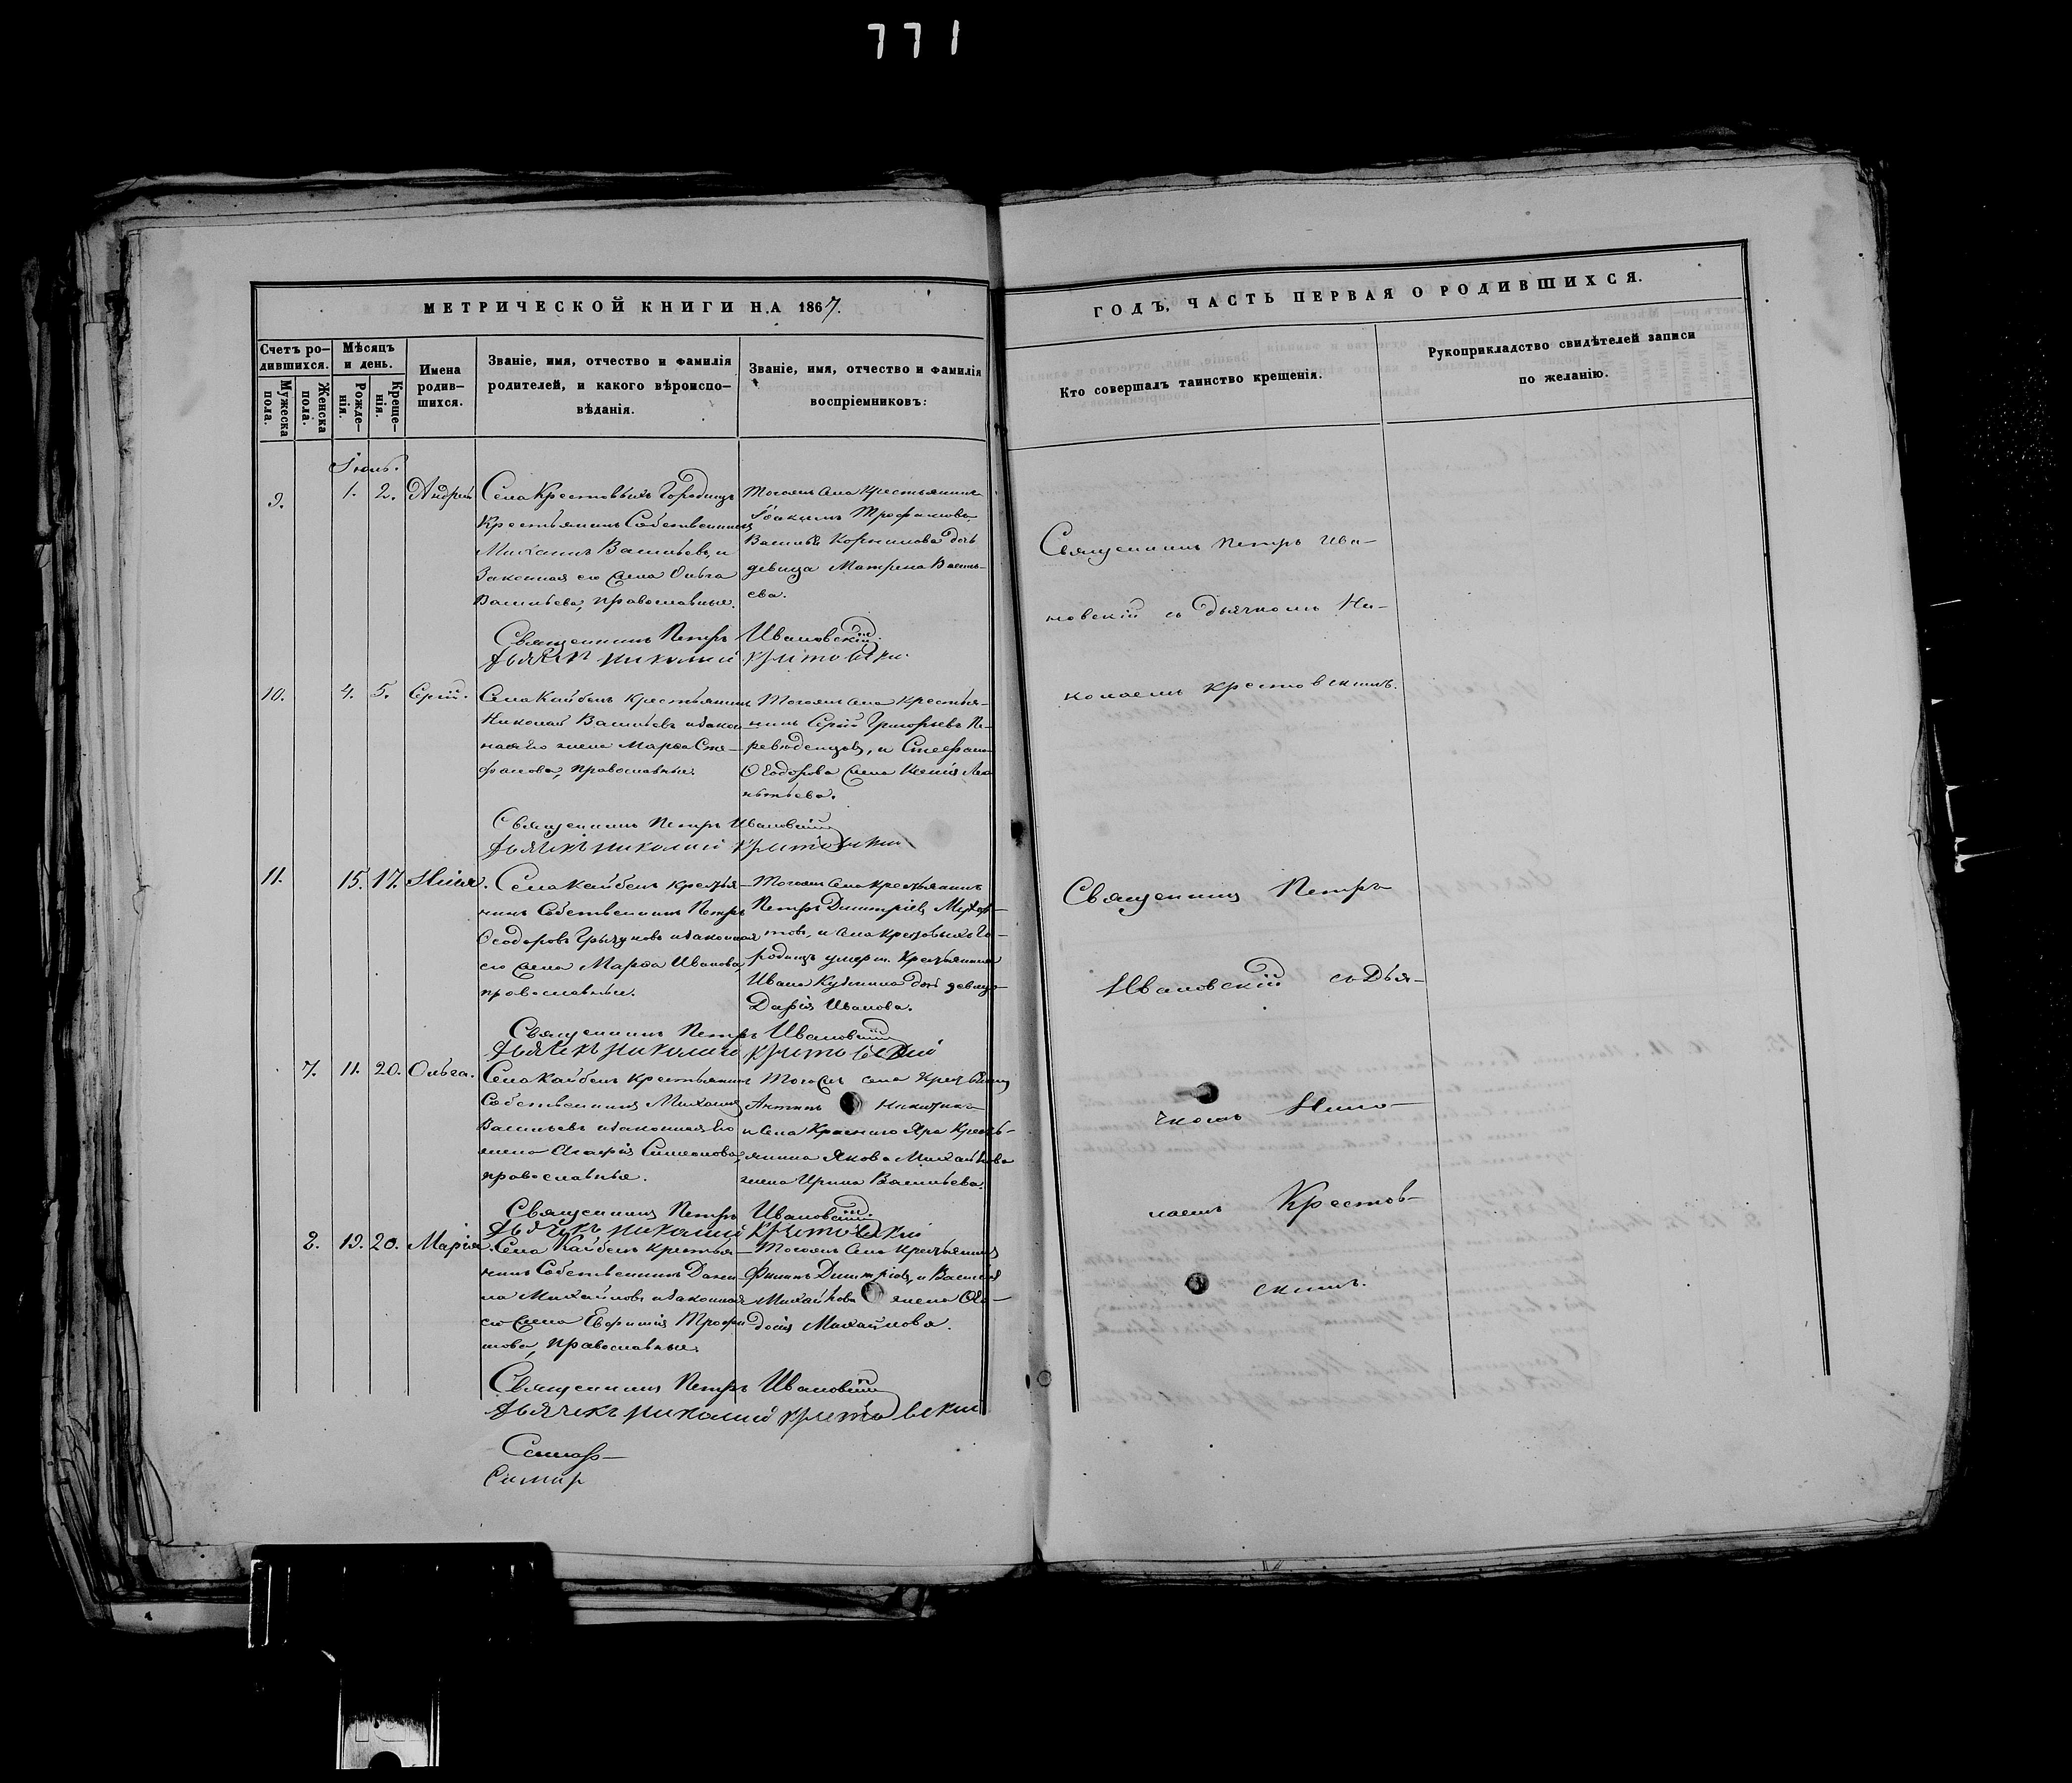 771
МЕТРИЧЕСКОЙ КНИГИ НА 1867.
ГОДЪ, ЧАСТЬ ПЕРВАЯ О РОДИВШИХСЯ.
Счетъ ро-
дившихся.
Мужеска
пола.
Женска
пола.
Мѣсяцъ
и день.
Рожде-
нія.
Креще-
нія.
Имена
родив-
шихся.
Званіе, имя, отчество и фамилія
родителей, и какого вѣроиспо-
вѣданія.
Званіе, имя, отчество и фамилія
воспріемниковъ:
Кто совершалъ таинство крещенія.
Рукоприкладство свидѣтелей записи
по желанію.
9.
1. 2. Андрей
Села Крестовыхъ Городищъ
Крестьянинъ Собственникъ
Михаилъ Васильевъ, и
Законная его жена Ольга
Васильева, православные.
Тогожъ села крестьянинъ
Василія Корнилова дочь
девица Матрена Василь-
ева.
Священникъ Петръ Ивановскій
Дьячекъ Николай Крестовскій
10. 4. 5. Сергій.
Села Кайбелъ крестьянинъ
Николай Васильевъ и закон-
ная его жена Марѳа Сте-
фанова, православные.
Тогожъ села крестья-
нинъ Сергій Григорьевъ Пе-
реведенцовъ, и Стефана
Ѳеодорова жена Ксенія
Священникъ Петръ Ивановскій
Дьячекъ Николай Крестовскій
11. 15. 17.
Села Кайбелъ крестья-
нинъ Собственникъ Петръ
Ѳеодоровъ и законная
его жена Марѳа Иванова,
православные.
Тогожъ села крестьянинъ
Петръ Димитріевъ
товъ, и села Крестовыхъ Го-
родищъ умерш. Крестьянина
Ивана дочь девица
Дарія Иванова.
Священникъ Петръ Ивановскій
Дьячекъ Николай Крестовскій
7. 11. 20. Ольга.
Села Кайбелъ крестьянинъ
Собственникъ Михаилъ
Васильевъ и законная его
жена Агафія Симеонова,
православные.
Тогожъ села крестьянинъ
Антипъ Никитинъ
и села Краснаго Яра Кресть-
янина Якова Михайлова
жена Ирина Васильева.
Священникъ Петръ Ивановскій
Дьячекъ Николай Крестовскій
8. 19. 20. Марія.
Села Кайбелъ крестья-
нинъ Собственникъ Дани-
ла Михайловъ и законная
его жена Евфимія Трофи-
мова, православные.
Тогожъ села крестьянинъ
Филипъ Димитріевъ, и Василія
Михайлова жена Ѳео-
досія Михайлова.
Священникъ Петръ Ивановскій
Дьячекъ Николай Крестовскій
Священникъ Петръ Ива-
новскій съ дьячкомъ Ни-
колаемъ Крестовскимъ.
Священникъ Петръ
Ивановскій съ Дья-
чкомъ Нико-
лаемъ Крестов-
скимъ.